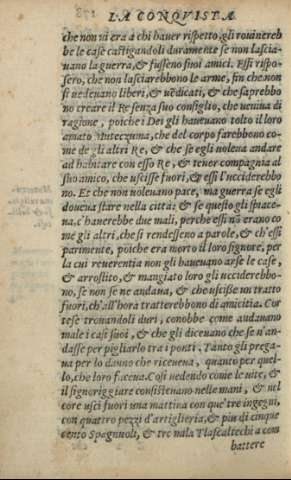 LA CONQVISTA
che non vi era a chi hauer rispetto, gli rouinereb
be le case castigandoli duramente se non lascia-
uano la guerra, & fussero suoi amici. Essi rispo-
sero, che non lasciarebbono le arme, fin che non
si uedeuano liberi, & uēdicati, & che saprebbo
no creare il Re senza suo consiglio, che ueniua di
ragione, poiche i Dei gli haueuano tolto il loro
amato Muteczuma, che del corpo farebbono co-
me de gli altri Re, & che se egli voleua andare
ad habitare con esso Re, & tener compagnia al
suo amico, che uscisse fuori, & essi l'ucciderebbo
no. Et che non voleuano pace, ma guerra se egli
doueua stare nella città: & se questo gli spiace-
ua, c'hauerebbe due mali, perche essi nō erano co
me gli altri, che si rendesseno a parole, & ch'essi
parimente, poiche era morto il loro signore, per
la cui reuerentia non gli haueuano arse le case,
& arrostito, & mangiato loro gli ucciderebbo-
no, se non se ne andaua, & che uscisse un tratto
fuori, ch'all'hora tratterebbono di amicitia. Cor
tese trouandoli duri, conobbe come andauano
male i casi suoi, & che gli diceuano che se n'an-
dasse per pigliarlo tra i ponti. Tanto gli prega-
ua per lo danno che riceueua, quanto per quel-
lo, che loro faceua. Cosi uedendo come le uite, &
il signoriggiare consisteuano nelle mani, & nel
core uscì fuori una mattina con que' tre ingegni,
con quattro pezzi d'artiglieria, & piu di cinque
cento Spagnuoli, & tre mila Tlascaltechi a com
battere